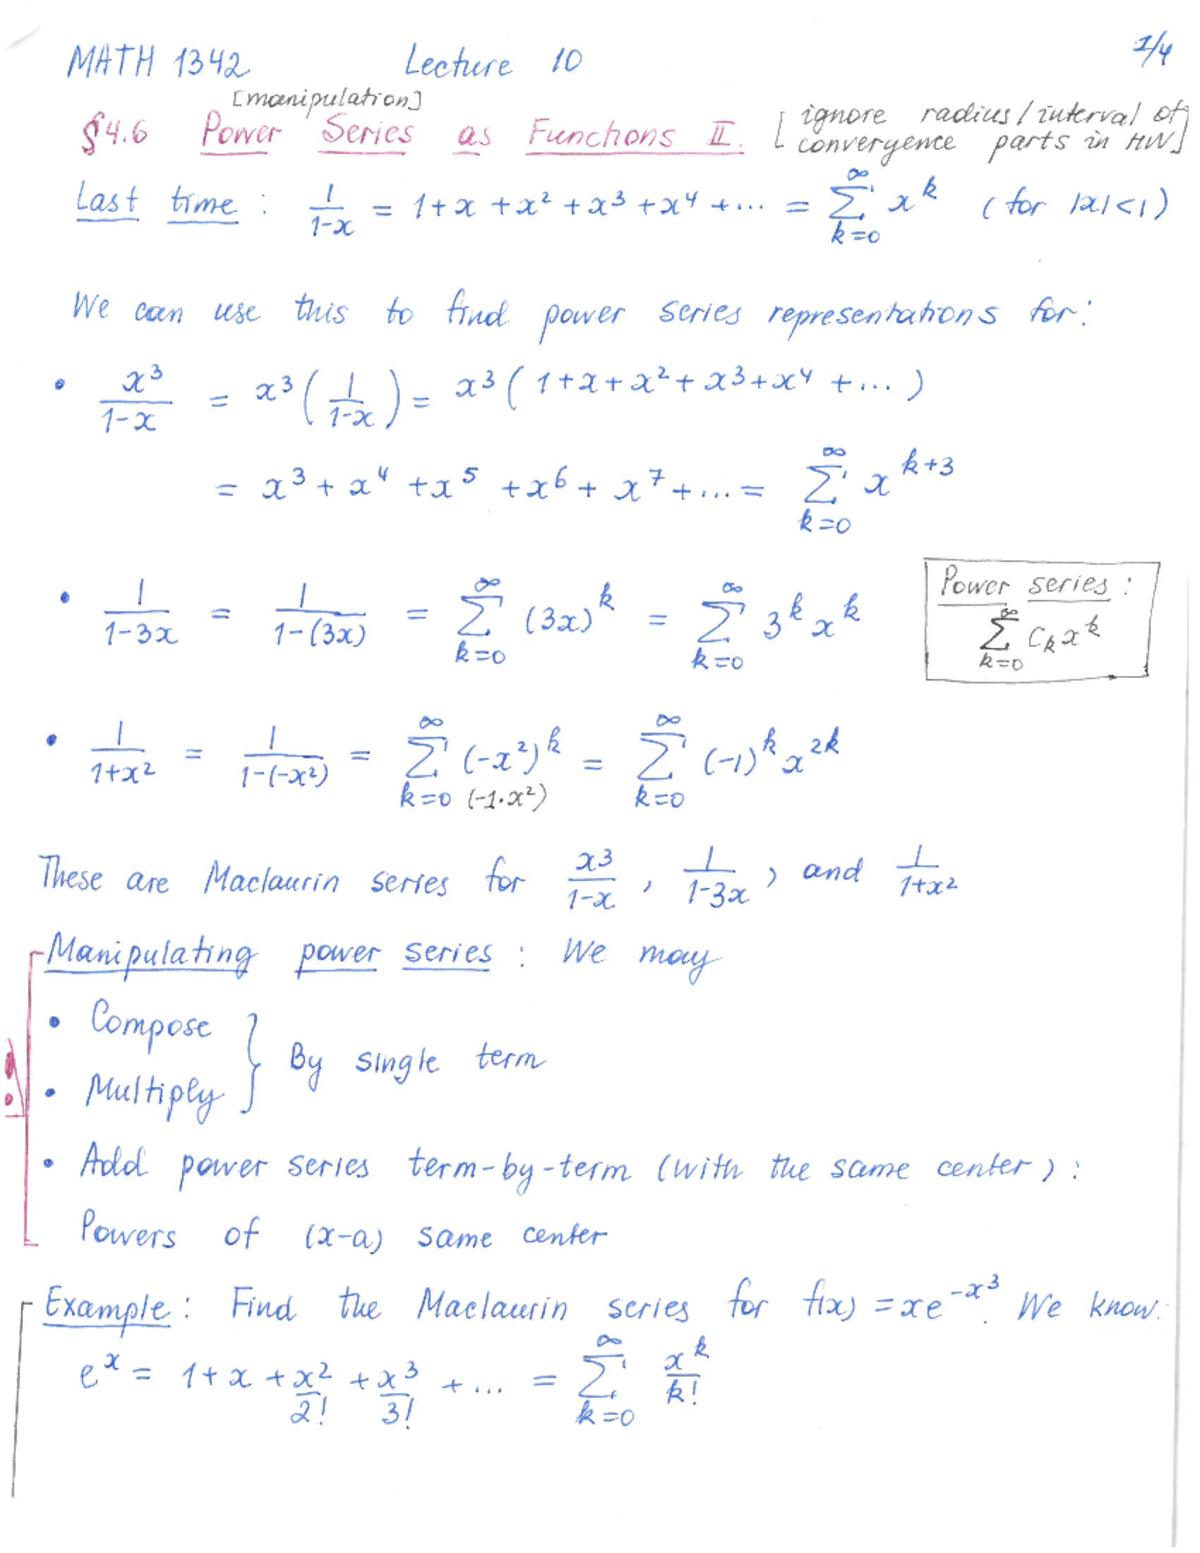 MATH 1342 Lecture 10 1/4
[manipulation]
§4.6 Power Series as Functions II. [ignore radius/interval of convergence parts in HW]
Last time: 1/(1-x) = 1+x+x²+x³+x⁴+... = ∑_{k=0}^{∞} x^k (for |x|<1)
We can use this to find power series representations for:
• x³/(1-x) = x³(1/(1-x)) = x³(1+x+x²+x³+x⁴+...)
= x³+x⁴+x⁵+x⁶+x⁷+... = ∑_{k=0}^{∞} x^{k+3}
• 1/(1-3x) = 1/(1-(3x)) = ∑_{k=0}^{∞} (3x)^k = ∑_{k=0}^{∞} 3^k x^k
Power series:
∑_{k=0}^{∞} C_k x^k
• 1/(1+x²) = 1/(1-(-x²)) = ∑_{k=0}^{∞} (-x²)^k = ∑_{k=0}^{∞} (-1)^k x^{2k}
(-1·x²)
These are Maclaurin series for x³/(1-x), 1/(1-3x), and 1/(1+x²)
Manipulating power series: We may
• Compose
• Multiply } By single term
• Add power series term-by-term (with the same center):
Powers of (x-a) same center
Example: Find the Maclaurin series for f(x) = xe^{-x³}. We know:
e^x = 1+x+x²/2!+x³/3!+... = ∑_{k=0}^{∞} x^k/k!